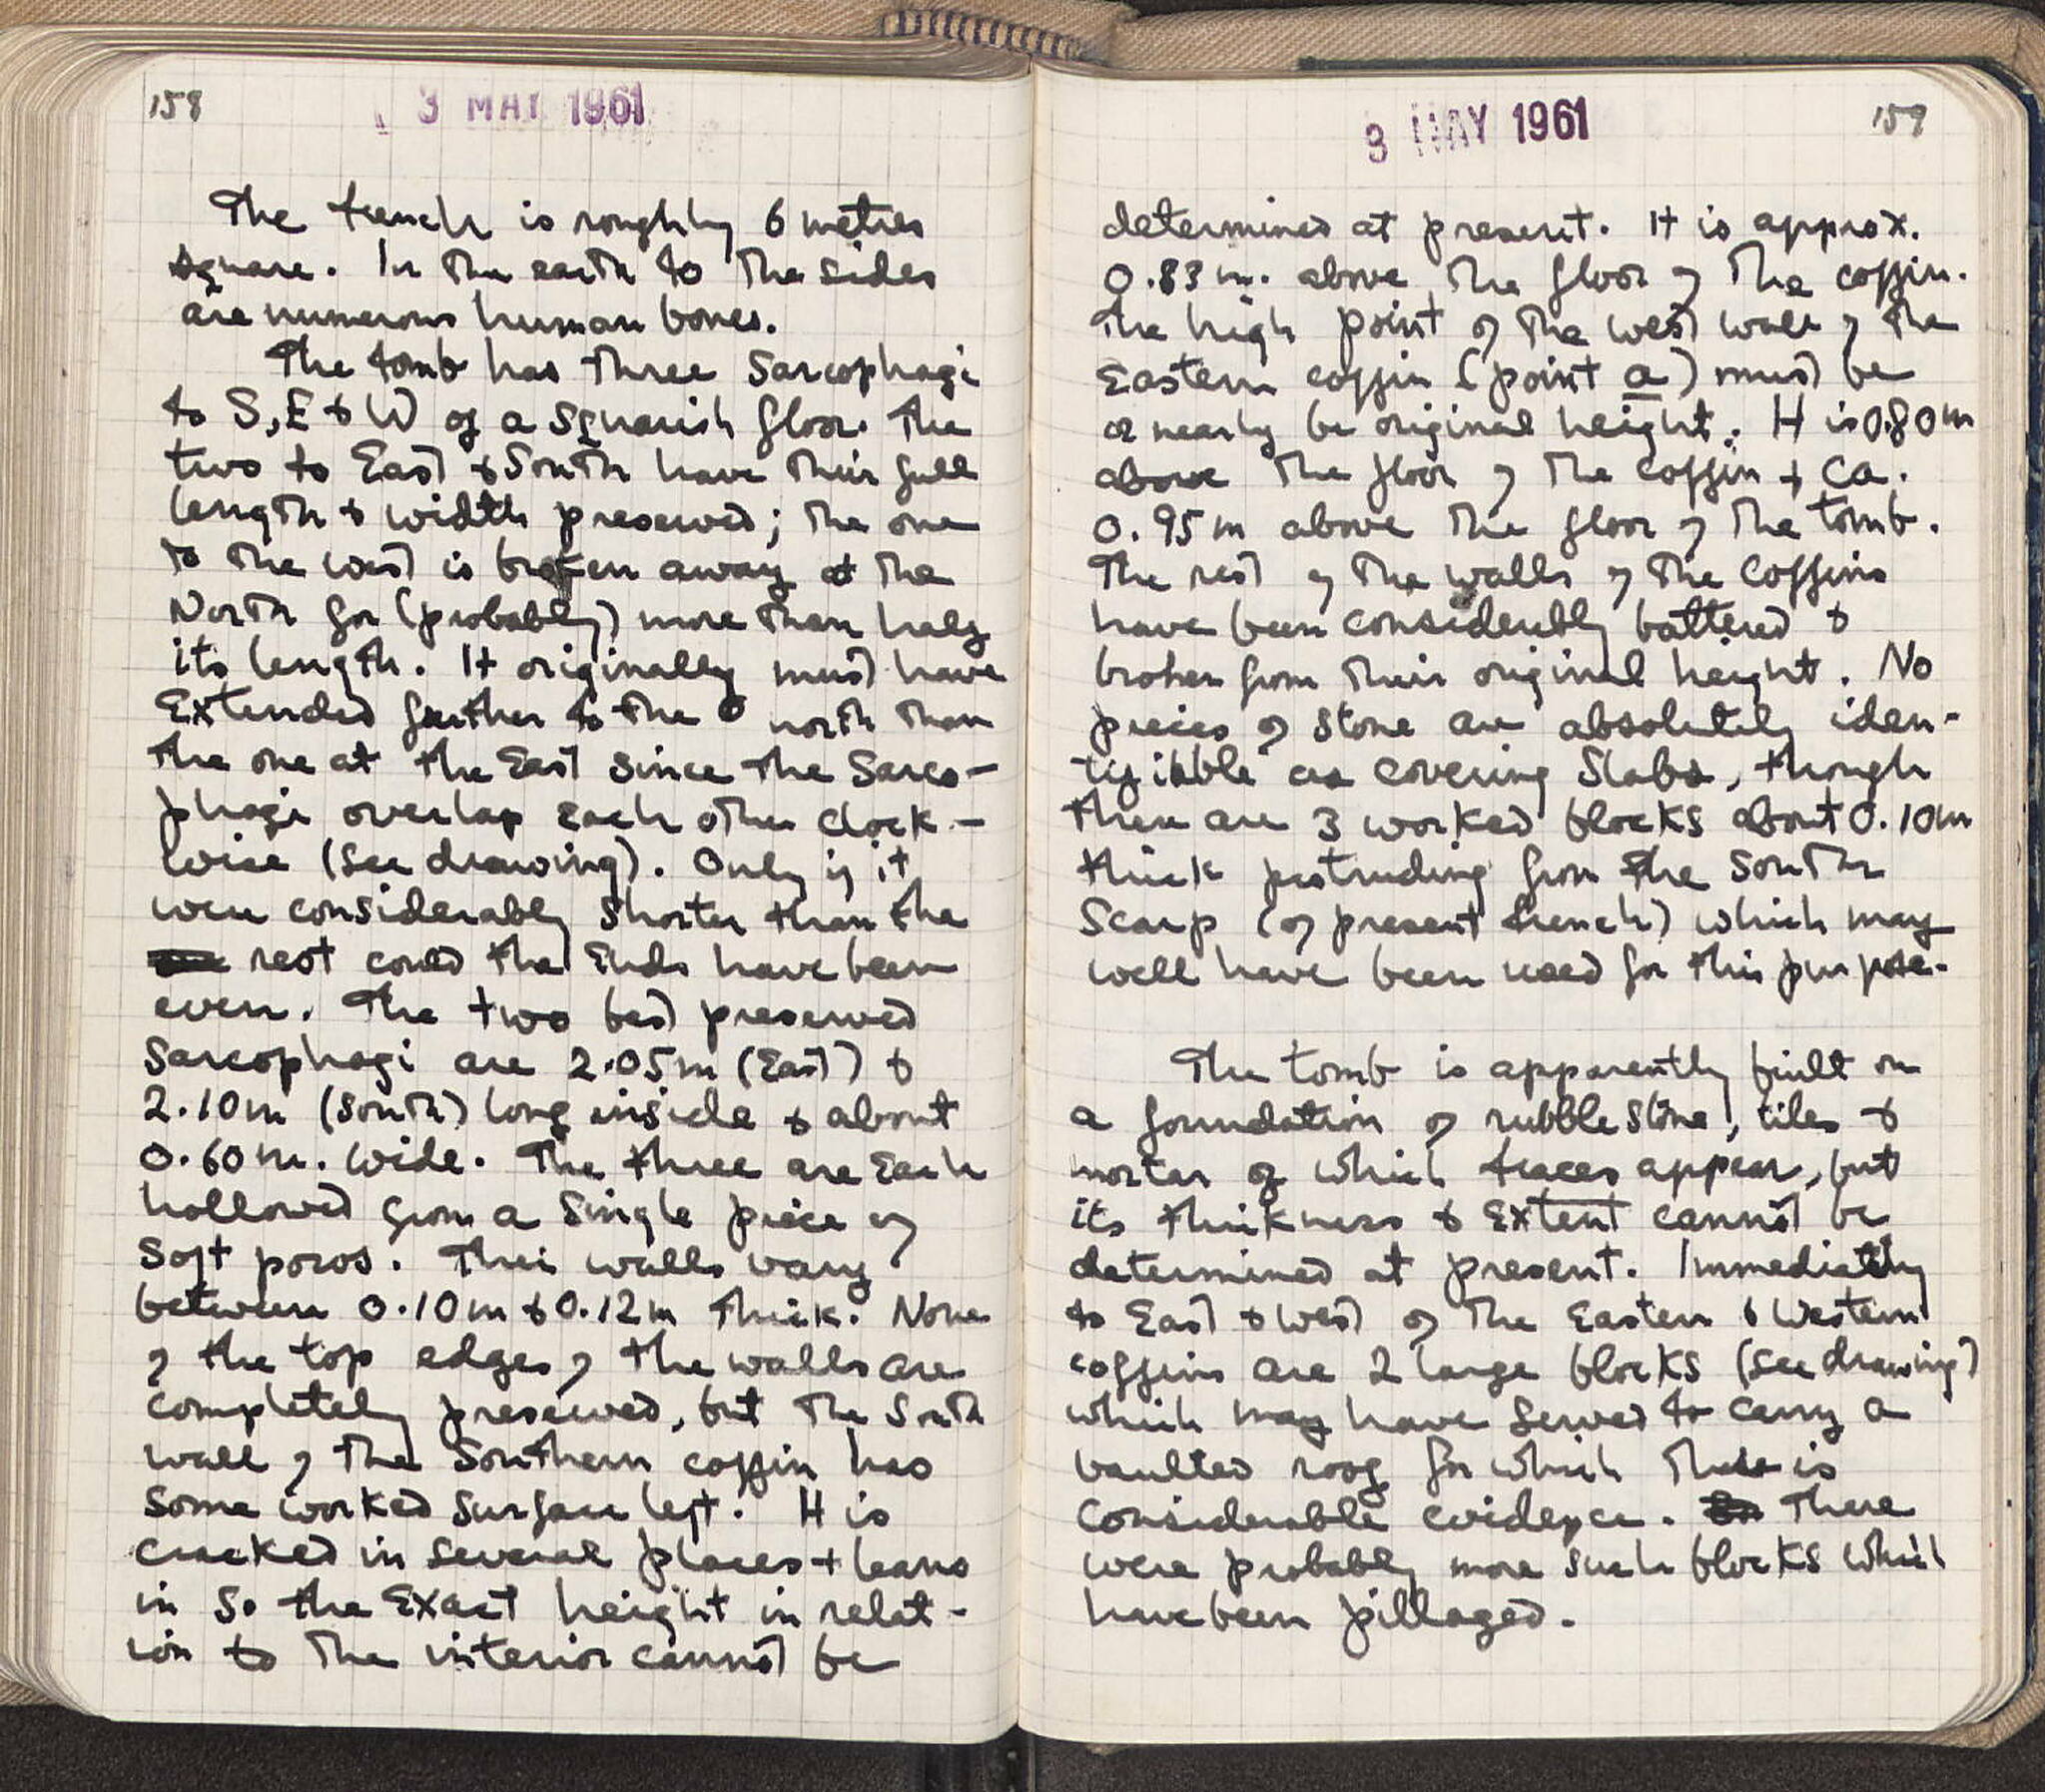 158
3 MAY 1961
The trench is roughly 6 metres
square. In the earth to the sides
are numerous human bones.
The tomb has three Sarcophagi
to S, E & W of a squarish floor. The
two to East & South have their full
length & width preserved; the one
to the west is broken away at the
North for (probably) more than half
its length. It originally must have
Extended further to the north than
the one at the East since the Sarco-
phagi overlap each other clock-
wise (see drawing). Only if it
were considerably shorter than the
rest could the ends have been
even. The two best preserved
Sarcophagi are 2.05m (East) &
2.10m (South) long inside & about
0.60m. wide. The three are Each
hollowed from a single piece of
soft poros. Their walls vary
between 0.10m & 0.12m thick. None
of the top edges of the walls are
completely preserved, but the South
wall of the Southern coffin has
some worked surface left. It is
cracked in several places + leans
in so the Exact height in relat-
ion to the interior cannot be
3 MAY 1961
159
determined at present. It is approx.
0.83 m. above the floor of the coffin.
The high point of the west wall of the
Eastern coffin (point a) must be
or nearly be original height. It is 0.80m
above the floor of the coffin + ca.
0.95m above the floor of the tomb.
The rest of the walls of the coffins
have been considerably battered &
broken from their original height. No
pieces of stone are absolutely iden-
tifiable as covering slabs, though
there are 3 worked blocks about 0.10m
thick protruding from the South
Scarp (of present trench) which may
well have been used for this purpose.
The tomb is apparently built on
a foundation of rubble stone, tiles &
mortar of which traces appear, but
its thickness & Extent cannot be
determined at present. Immediately
to East & West of the Eastern & Western
coffins are 2 large blocks (see drawing)
which may have served to carry a
vaulted roof for which there is
considerable evidence. There
were probably more such blocks which
have been pillaged.